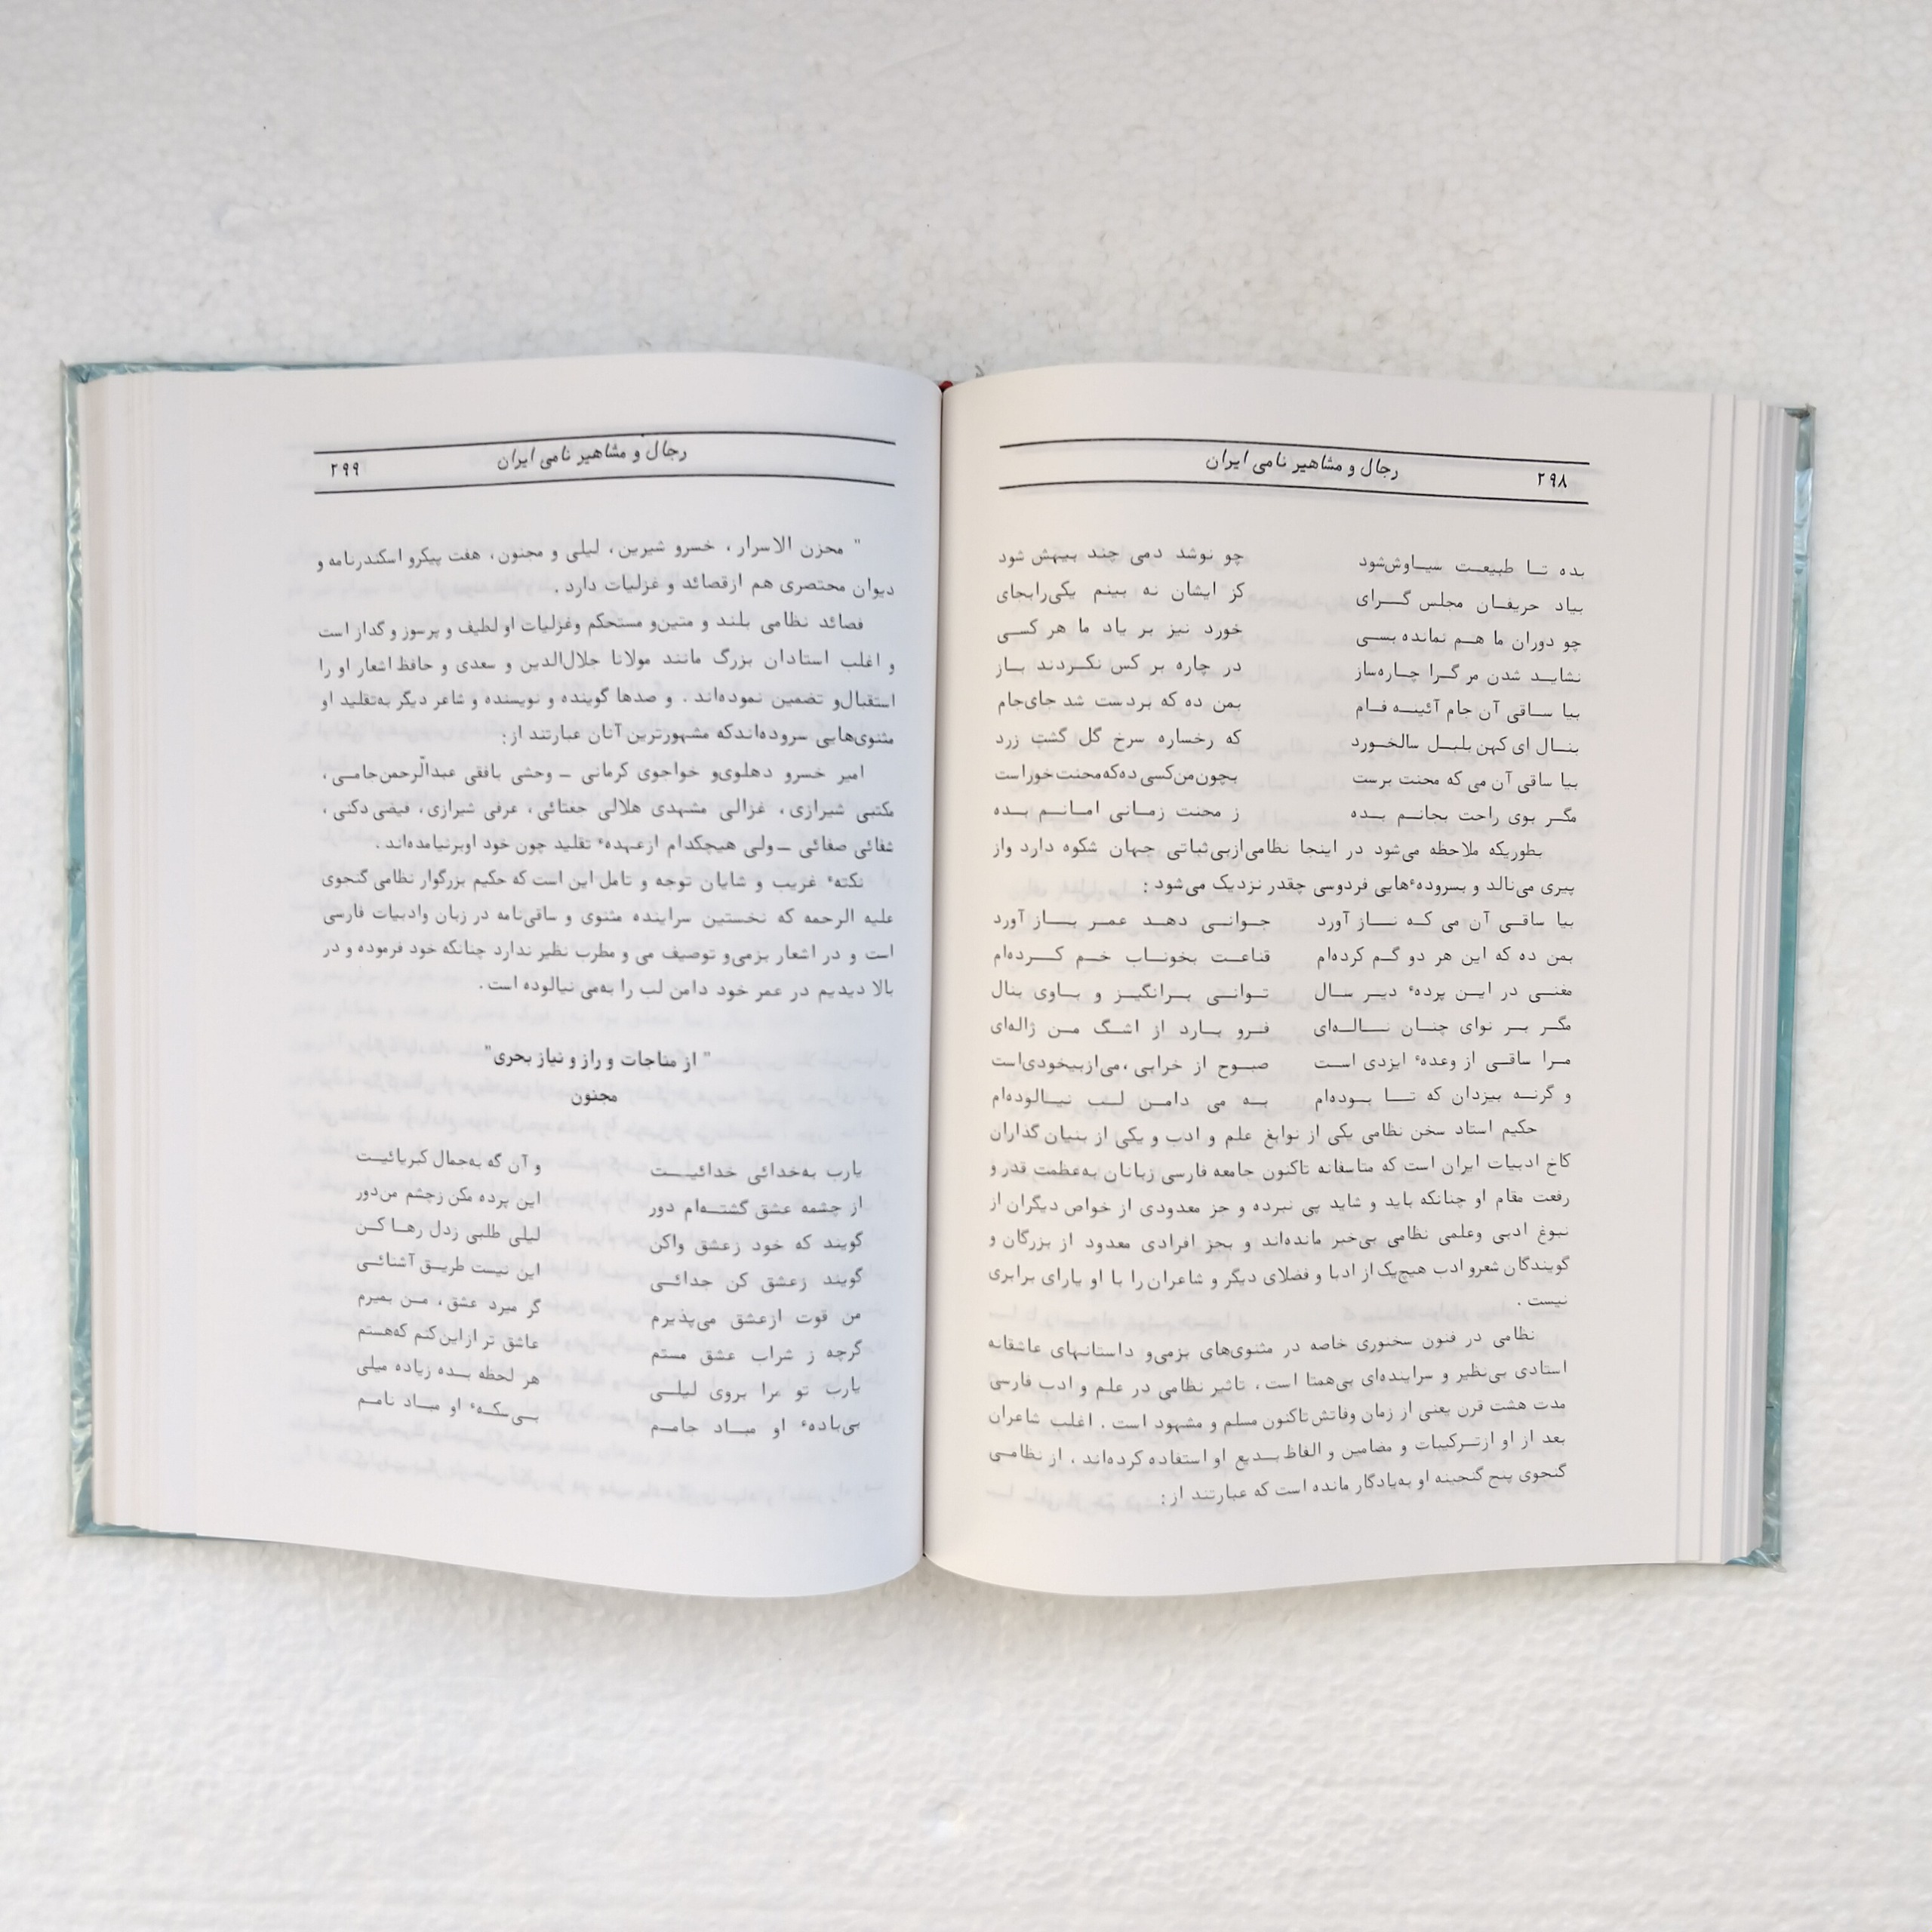 ۲۹۸ رجال و مشاهیر نامی ایران
بده تـا طبیعـت سیـاوش‌شود چو نوشد دمی چند بیهش شود
بیاد حریفـان مجلس گـرای کز ایشان نه بینم یکی‌رابجای
چو دوران ما هـم نمانده بسـی خورد نیز بر یاد ما هر کسـی
نشایـد شدن مر گـرا چـاره‌ساز در چاره بر کس نکـردند بـاز
بیا سـاقی آن جام آئینـه فـام بمن ده که بردست شد جای‌جام
بنـال ای کهن بلبـل سالخـورد که رخساره سرخ گل گشت زرد
بیا ساقی آن می که محنت برست بچون‌من‌کسی ده‌که‌محنت‌خوراست
مگـر بوی راحت بجانـم بـده ز محنت زمـانی امـانـم بـده
بطوریکه ملاحظه می‌شود در اینجا نظامی‌ازبی‌ثباتی جهان شکوه دارد واز
پیری می‌نالد و بسروده‌ٔهایی فردوسی چقدر نزدیک می‌شود :
بیا ساقـی آن می کـه نـاز آورد جـوانـی دهـد عمـر بـاز آورد
بمن ده که این هر دو گـم کرده‌ام قناعـت بخونـاب خـم کـرده‌ام
مغنـی در ایـن پرده‌ٔ دیـر سـال تـوانـی بـرانگیـز و بـاوی بنال
مگـر بـر نوای چنـان نـالـه‌ای فـرو بـارد از اشـگ مـن ژاله‌ای
مـرا ساقـی از وعده‌ٔ ایزدی اسـت صبـوح از خرابی ،می‌ازبیخودی‌است
و گرنـه بیزدان که تـا بـوده‌ام بـه می دامـن لـب نیـالوده‌ام
حکیم استاد سخن نظامی یکی از نوابغ علم و ادب و یکی از بنیان گذاران
کاخ ادبیات ایران است که متاسفانه تاکنون جامعه فارسی زبانان به‌عظمت قدر و
رفعت مقام او چنانکه باید و شاید پی نبرده و جز معدودی از خواص دیگران از
نبوغ ادبی وعلمی نظامی بی‌خبر مانده‌اند و بجز افرادی معدود از بزرگان و
گویندگان شعرو ادب هیچ‌یک از ادبا و فضلای دیگر و شاعران را با او یارای برابری
نیست .
نظامی در فنون سخنوری خاصه در مثنوی‌های بزمی‌و داستانهای عاشقانه
استادی بی‌نظیر و سراینده‌ای بی‌همتا است ، تاثیر نظامی در علم و ادب فارسی
مدت هشت قرن یعنی از زمان وفاتش تاکنون مسلم و مشهود است . اغلب شاعران
بعد از او ازتـرکیبات و مضامین و الفاظ بـدیع او استفاده کرده‌اند ، از نظامـی
گنجوی پنج گنجینه او به‌یادگار مانده است که عبارتند از :
رجال و مشاهیر نامی ایران ۲۹۹
" محزن الاسرار ، خسرو شیرین ، لیلی و مجنون ، هفت پیکرو اسکندرنامه و
دیوان محتصری هم ازقصائد و غزلیات دارد .
قصائد نظامی بلند و متین‌و مستحکم وغزلیات او لطیف و پرسوز و گداز است
و اغلب استادان بزرگ مانند مولانا جلال‌الدین و سعدی و حافظ اشعار او را
استقبال‌و تضمین نموده‌اند . و صدها گوینده و نویسنده و شاعر دیگر به‌تقلید او
مثنوی‌هایی سروده‌اندکه مشهورترین آنان عبارتند از:
امیر خسرو دهلوی‌و خواجوی کرمانی ـ وحشی بافقی عبدالّرحمن‌جامـی ،
مکتبی شیرازی ، غزالی مشهدی هلالی جغتائی ، عرفی شیرازی ، فیضی دکنی ،
شفائی صفائی ـ ولی هیچکدام ازعهده‌ٔ تقلید چون خود اوبرنیامده‌اند .
نکته‌ٔ غریب و شایان توجه و تامل این است که حکیم بزرگوار نظامی گنجوی
علیه الرحمه که نخستین سراینده مثنوی و ساقی‌نامه در زبان وادبیات فارسی
است و در اشعار بزمی‌و توصیف می و مطرب نظیر ندارد چنانکه خود فرموده و در
بالا دیدیم در عمر خود دامن لب را به‌می نیالوده است .
" از مناجات و راز و نیاز بحری"
مجنون
یارب به‌خدائی خدائیـت و آن گه به‌جمال کبریائیـت
از چشمه عشق گشتـه‌ام دور این پرده مکن زچشم من‌دور
گویند که خود زعشق واکن لیلی طلبی زدل رهـا کـن
گویند زعشق کن جدائـی این نیست طریـق آشنائـی
من قوت ازعشق می‌پذیرم گر میرد عشق ، مـن بمیرم
گرچه ز شراب عشق مستم عاشق تر ازاین‌کنم که‌هستم
یارب تو مرا بروی لیلـی هر لحظه بـده زیاده میلی
بی‌باده‌ٔ او مبـاد جامـم بـی‌سکـه‌ٔ او مبـاد نامـم